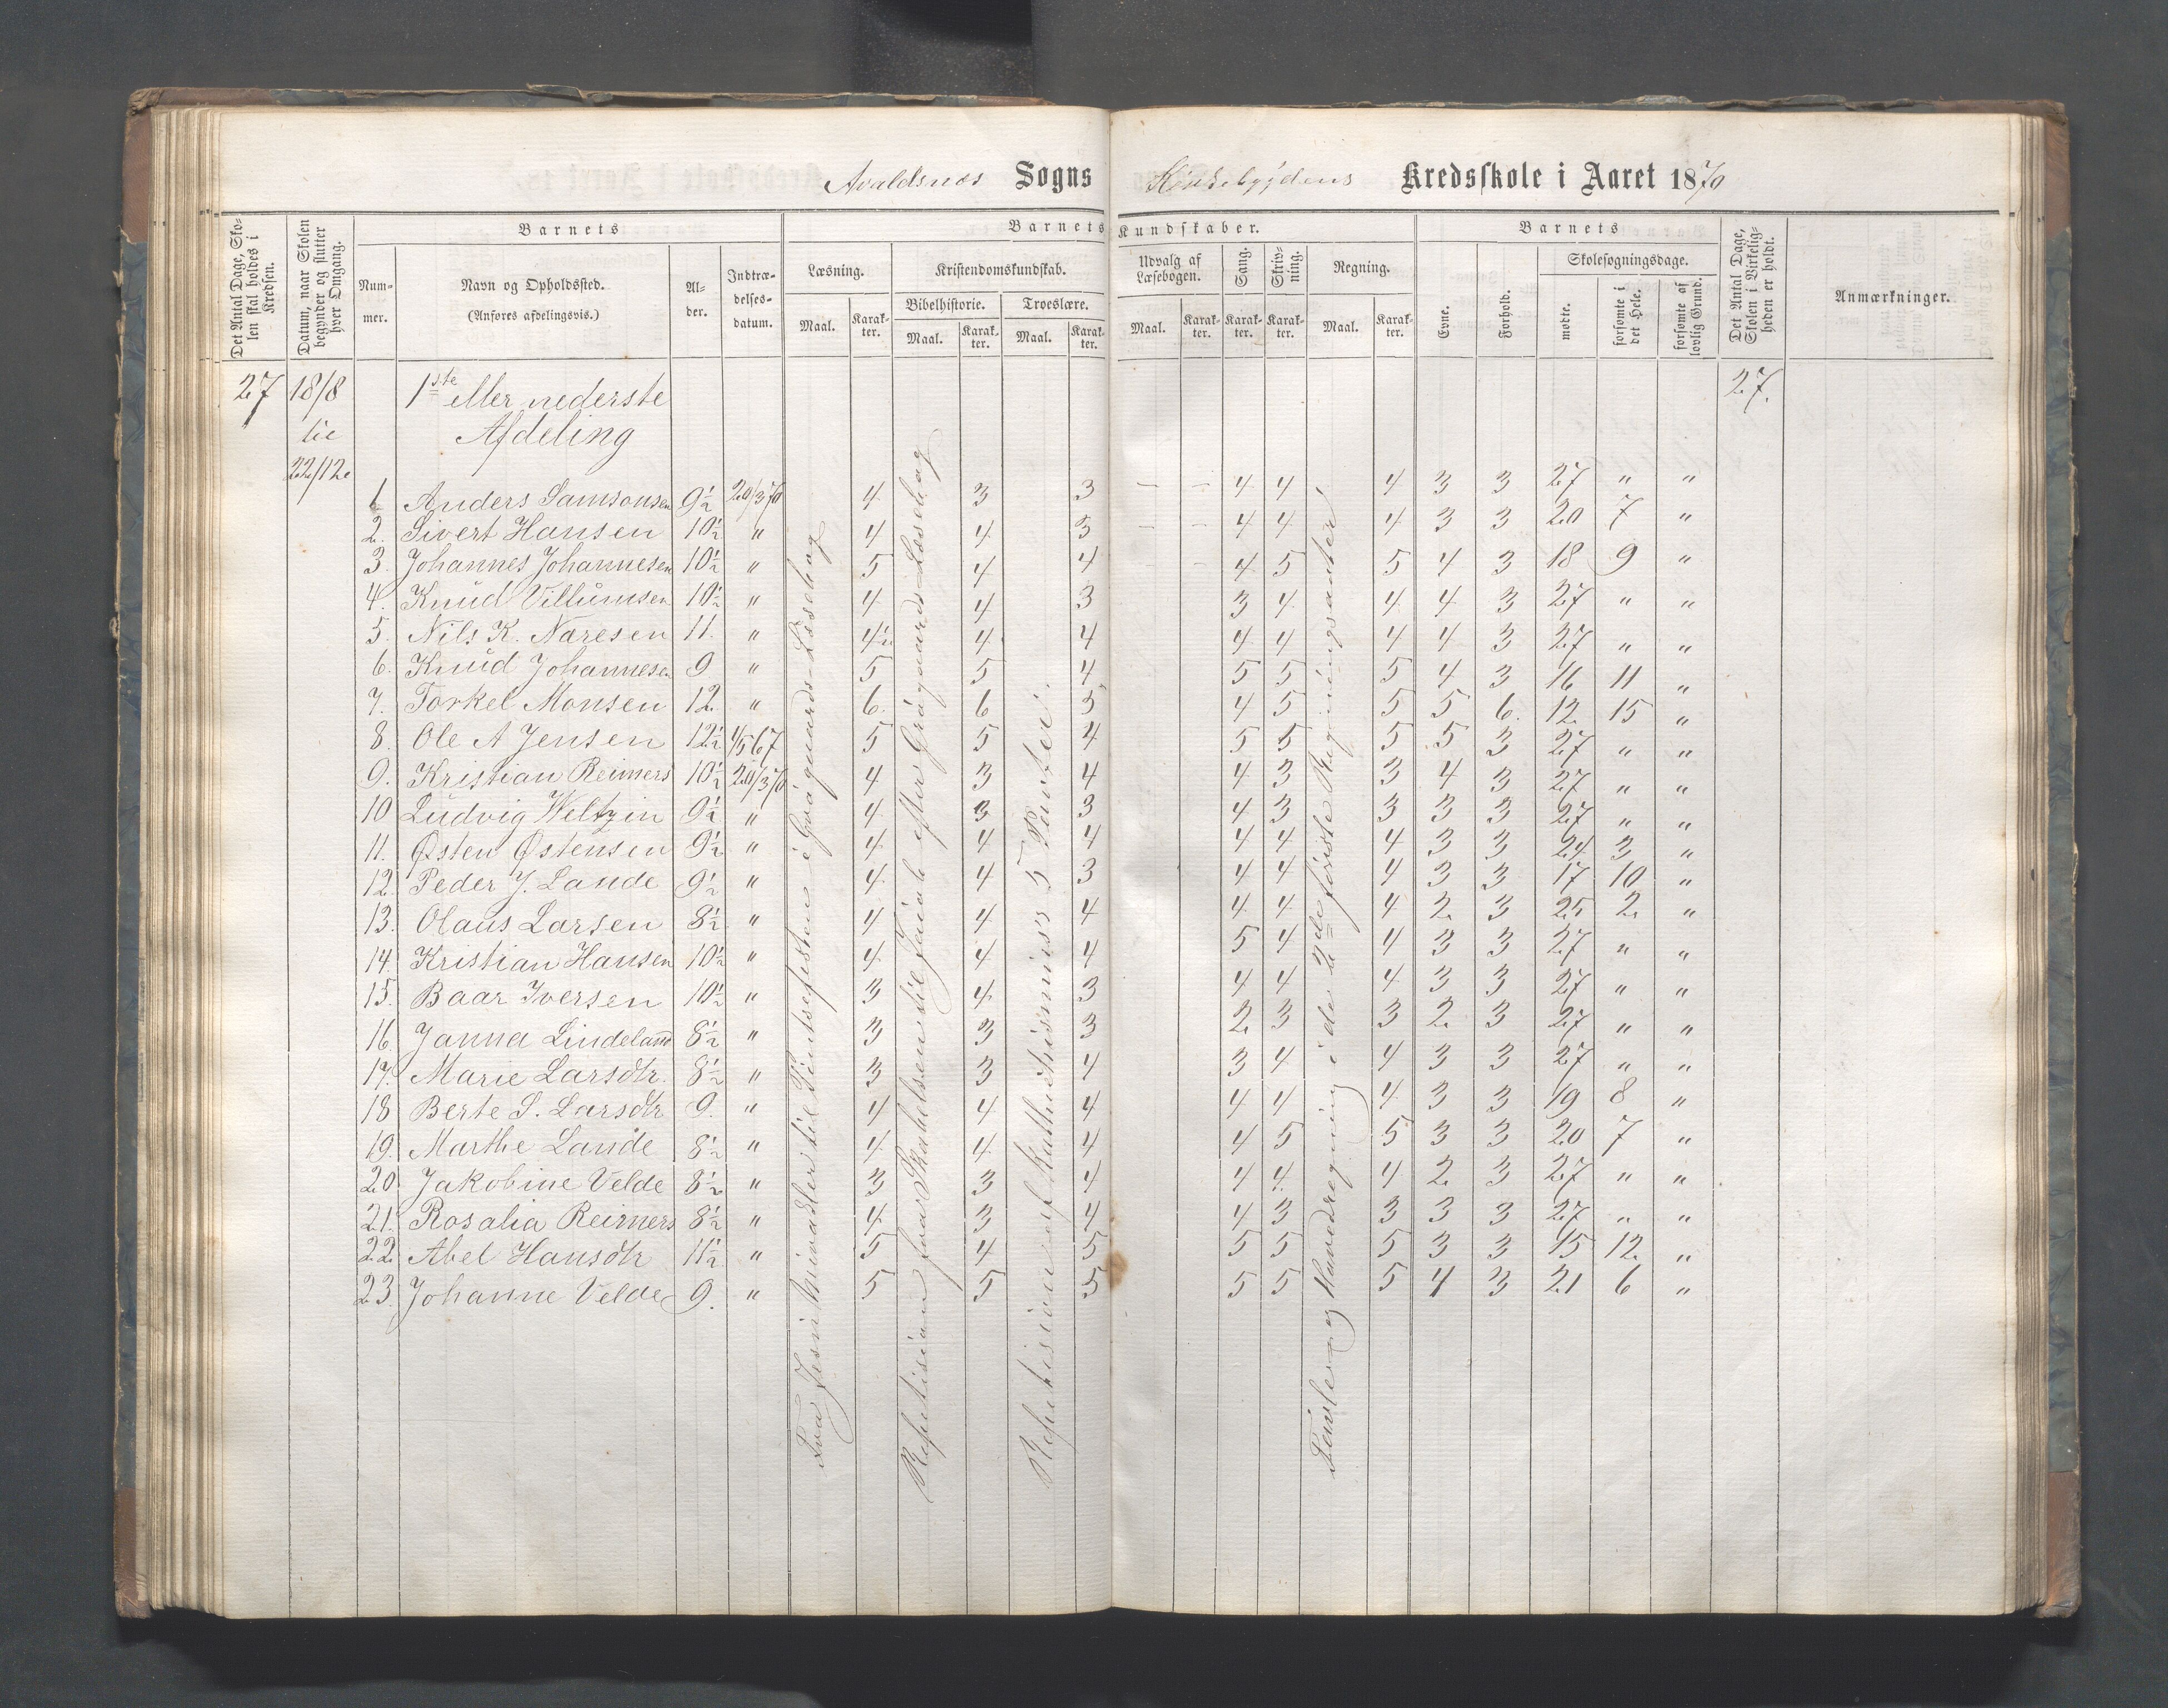 Avaldsnes Sogns Kredsskole i Aaret 1870
Det Antal Dage, Skolen skal holdes i Kredsen.
Datum, naar Skolen begynder og slutter hver Omgang.
Barnets
Nummer.
Navn og Opholdssted.
(Anføres afdelingsvis.)
Alder.
Indtrædelsesdatum.
Barnets Kundskaber.
Læsning.
Maal. Karakter.
Kristendomskundskab.
Bibelhistorie. Troeslære.
Maal. Karakter. Maal. Karakter.
Udvalg af Læsebogen.
Maal. Karakter.
Sang. Karakter.
Skrivning. Karakter.
Regning.
Maal. Karakter.
Barnets
Evne. Forhold.
Skolesøgningsdage.
mødte. forsømte i det Hele. forsømte af lovlig Grund.
Det Antal Dage, Skolen i Virkeligheden er holdt.
Anmærkninger.
27 18/8 1ste eller nederste 27.
til Afdeling
22/12
1 Anders Samsonsen 9½ 20/3 70 4 3 3 – – 4 4 4 3 3 27 " "
2. Sivert Hansen 10½ " 4 4 3 – – 4 4 4 3 3 20 7 "
3. Johannes Johannesen 10½ " 5 4 4 – – 4 5 5 4 3 18 9 "
4. Knud Villumsen 10½ " 4 4 3 3 4 4 4 3 27 " "
5. Nils K. Naresen 11. " 4½ 4 4 4 4 4 4 3 27 " "
6. Knud Johannesen 9 " 5 5 4 5 5 5 4 3 16 11 "
7. Torkel Monsen 12. " 6. 6 5 4 5 5 5 6. 12 15 "
8. Ole A Jensen 12½ 4/5 67 5 5 4 5 5 5 5 3 27 " "
9. Kristian Reimers 10½ 20/3 70 4 3 4 4 3 3 4 3 27 " "
10 Ludvig Weltzin 9½ " 4 3 3 4 3 3 3 3 27 " "
11. Østen Østensen 9½ " 4 4 4 4 4 4 3 3 24 3 "
12. Peder J. Lande 9½ " 4 4 3 4 4 4 3 3 17 10 "
13. Olaus Larsen 8½ " 4 4 4 4 4 4 2. 3 25 2. "
14. Kristian Hansen 10½ " 4 4 4 5 4 4 3 3 27 " "
15. Baar Iversen 10½ " 3 4 3 4 4 4 3 3 27 " "
16 Janna Lindeland 8½ " 3 3 3 2. 3 3 2. 3 27 " "
17. Marie Larsdtr. 8½ " 3 3 4 3 4 4 3 3 27 " "
18 Berte S. Larsdtr 9. " 4 4 4 4 4 4 3 3 19 8 "
19. Marthe Lande 8½ " 4 4 4 4 5 5 3 3 20 7 "
20. Jakobine Velde 8½ " 3 3 4 4 4 4 2. 3 27 " "
21. Rosalia Reimers 8½ " 4 3 4 4 3 3 3 3 27 " "
22. Abel Hansdtr 11½ " 5 4 5 5 5 5 3 3 15 12. "
23. Johanne Velde 9. " 5 5 5 5 5 5 4 3 21 6 "
Fra til Pintsefesten i Læsebog
Repetision fra Skabelsen til efter Læsebog
Repetision af Kathekismus's 5 Parter.
og Hovedregning i de 2de første Regningsarter.